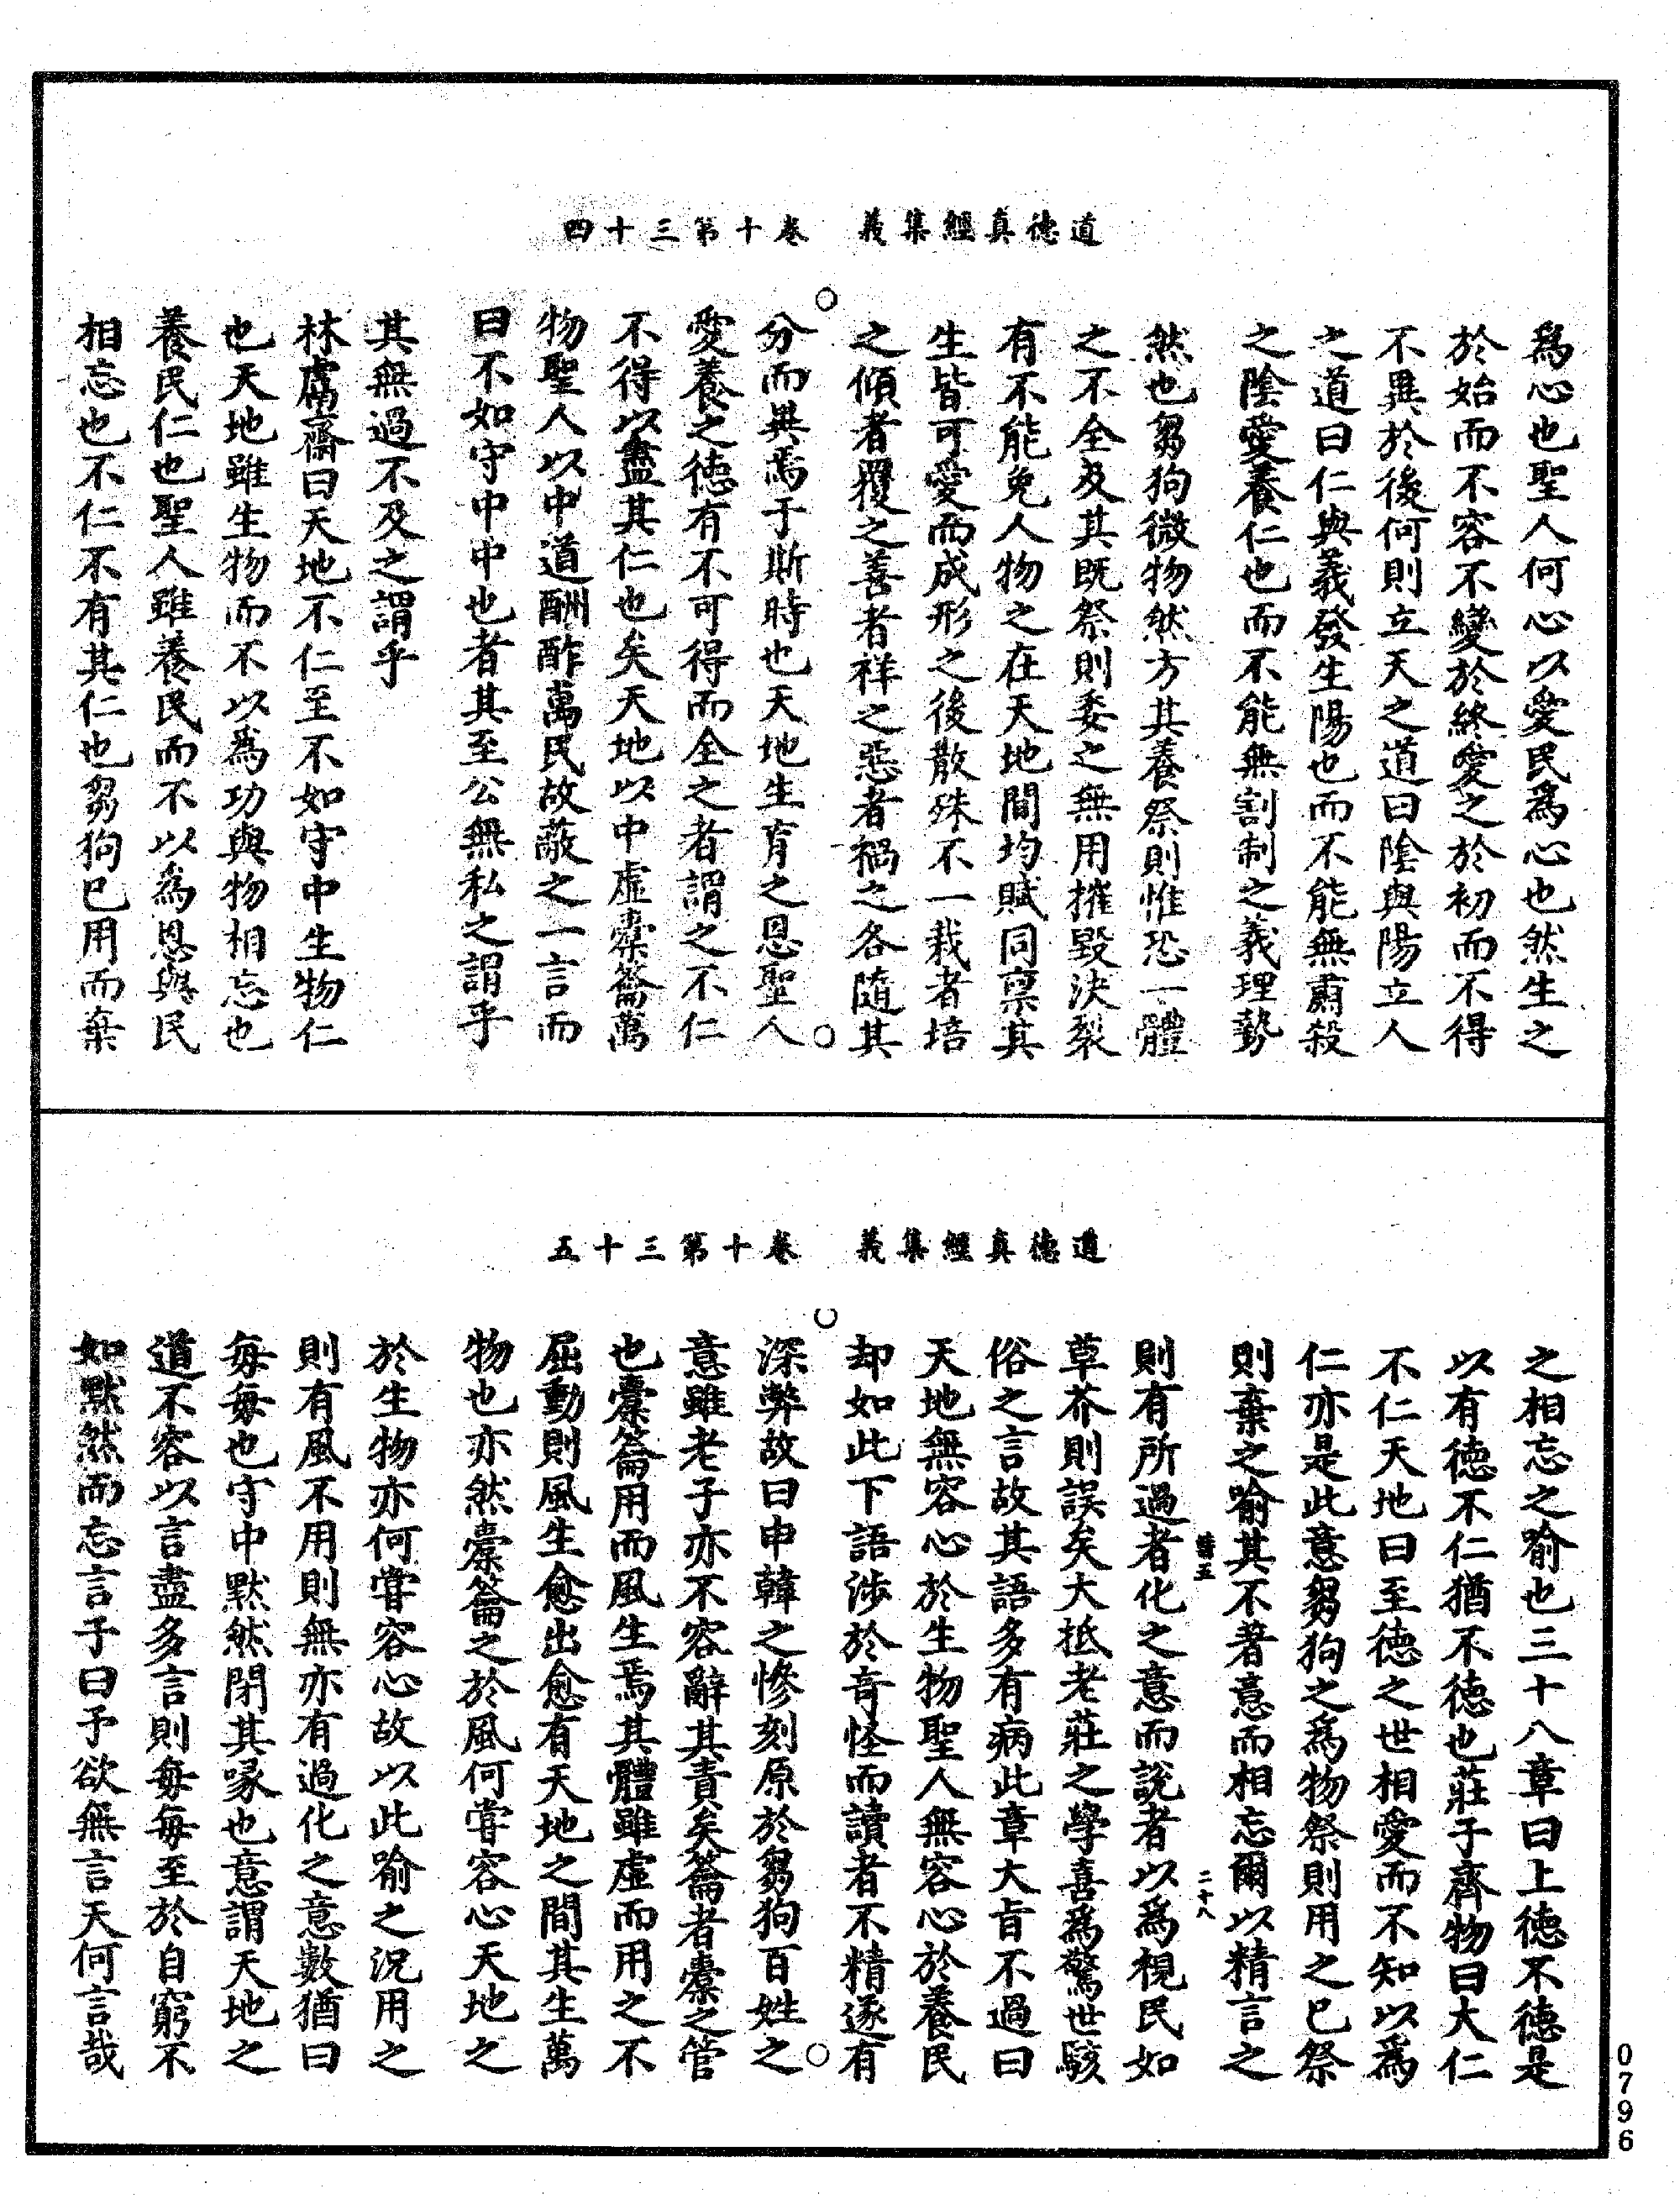 道德真經集義　卷十第三十四
爲心也聖人何心以愛民爲心也然生之
於始而不容不變於終愛之於初而不得
不異於後何則立天之道曰陰與陽立人
之道曰仁與義發生陽也而不能無肅殺
之陰愛養仁也而不能無割制之義理勢
然也芻狗微物然方其養祭則惟恐一體
之不全及其既祭則委之無用摧毀決裂
有不能免人物之在天地間均賦同稟其
生皆可愛而成形之後散殊不一栽者培
之傾者覆之善者祥之惡者禍之各隨其
分而異焉于斯時也天地生育之恩聖人
愛養之德有不可得而全之者謂之不仁
不得以盡其仁也矣天地以中虛橐籥萬
物聖人以中道酬酢萬民故蔽之一言而
曰不如守中中也者其至公無私之謂乎
其無過不及之謂乎
林鬳齋曰天地不仁至不如守中生物仁
也天地雖生物而不以爲功與物相忘也
養民仁也聖人雖養民而不以為恩與民
相忘也不仁不有其仁也芻狗已用而棄
道德真經集義　卷十第三十五
之相忘之喻也三十八章曰上德不德是
以有德不仁猶不德也莊子齊物曰大仁
不仁天地曰至德之世相愛而不知以爲
仁亦是此意芻狗之爲物祭則用之已祭
則棄之喻其不著意而相忘爾以精言之
則有所過者化之意而說者以爲視民如
草芥則誤矣大抵老莊之學喜爲驚世駭
俗之言故其語多有病此章大旨不過曰
天地無容心於生物聖人無容心於養民
却如此下語涉於奇怪而讀者不精遂有
深弊故曰申韓之慘刻原於芻狗百姓之
意雖老子亦不容辭其責矣籥者橐之管
也橐籥用而風生焉其體雖虛而用之不
屈動則風生愈出愈有天地之間其生萬
物也亦然橐籥之於風何嘗容心天地之
於生物亦何嘗容心故以此喻之況用之
則有風不用則無亦有過化之意數猶曰
每每也守中默然閉其喙也意謂天地之
道不容以言盡多言則每每至於自窮不
如默然而忘言子曰予欲無言天何言哉
二十八
0796